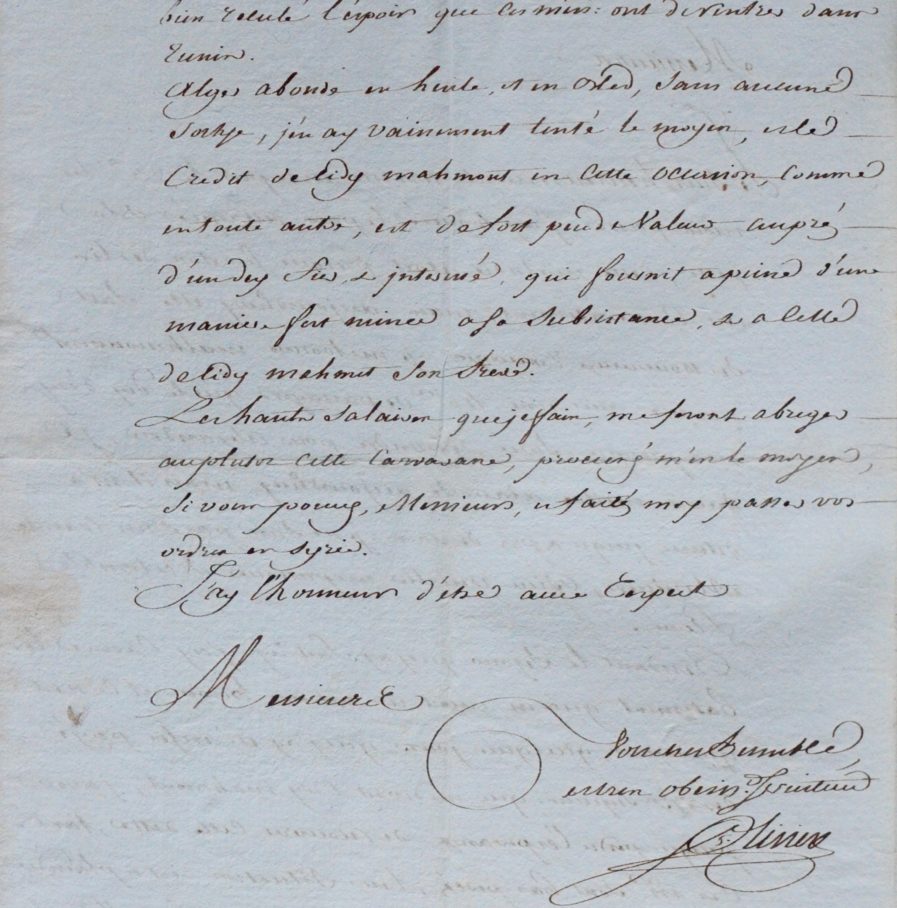 bien reculé l'espoir que ces mrs: ont de rentrer dans
Tunis.
Alger abonde en huile, et en bled, sans aucune
sortie, j'en ay vainement tenté le moyen, et le
Credit de Sidy mahmout en cette occasion, comme
en toute autre, est de fort peu de Valeur auprés
d'un dey fier, & interessé, qui fournit a peine d'une
maniere fort mince a sa subsistance, & a celle
de Sidy mahmet son frere.
Les hauts salaires que je fais, me feront abreger
auplutot cette Carravane, procurés m'en le moyen,
si vous pouvez, Messieurs, et faites moy passer vos
ordres en Syrie.
J'ay l'honneur d'être avec respect
Messieurs
Votre tres humble,
et tres obeiss.t Serviteur